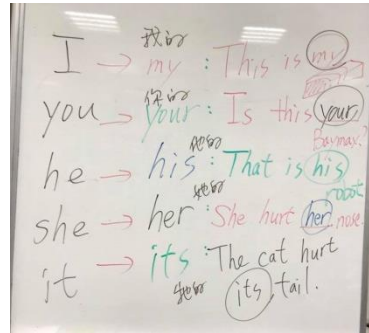 我的
I → my : This is my
你的
you → your : Is this your
Baymax?
他的
he → his : That is his
robot
她的
she → her : She hurt her nose.
it → its : The cat hurt
its tail.